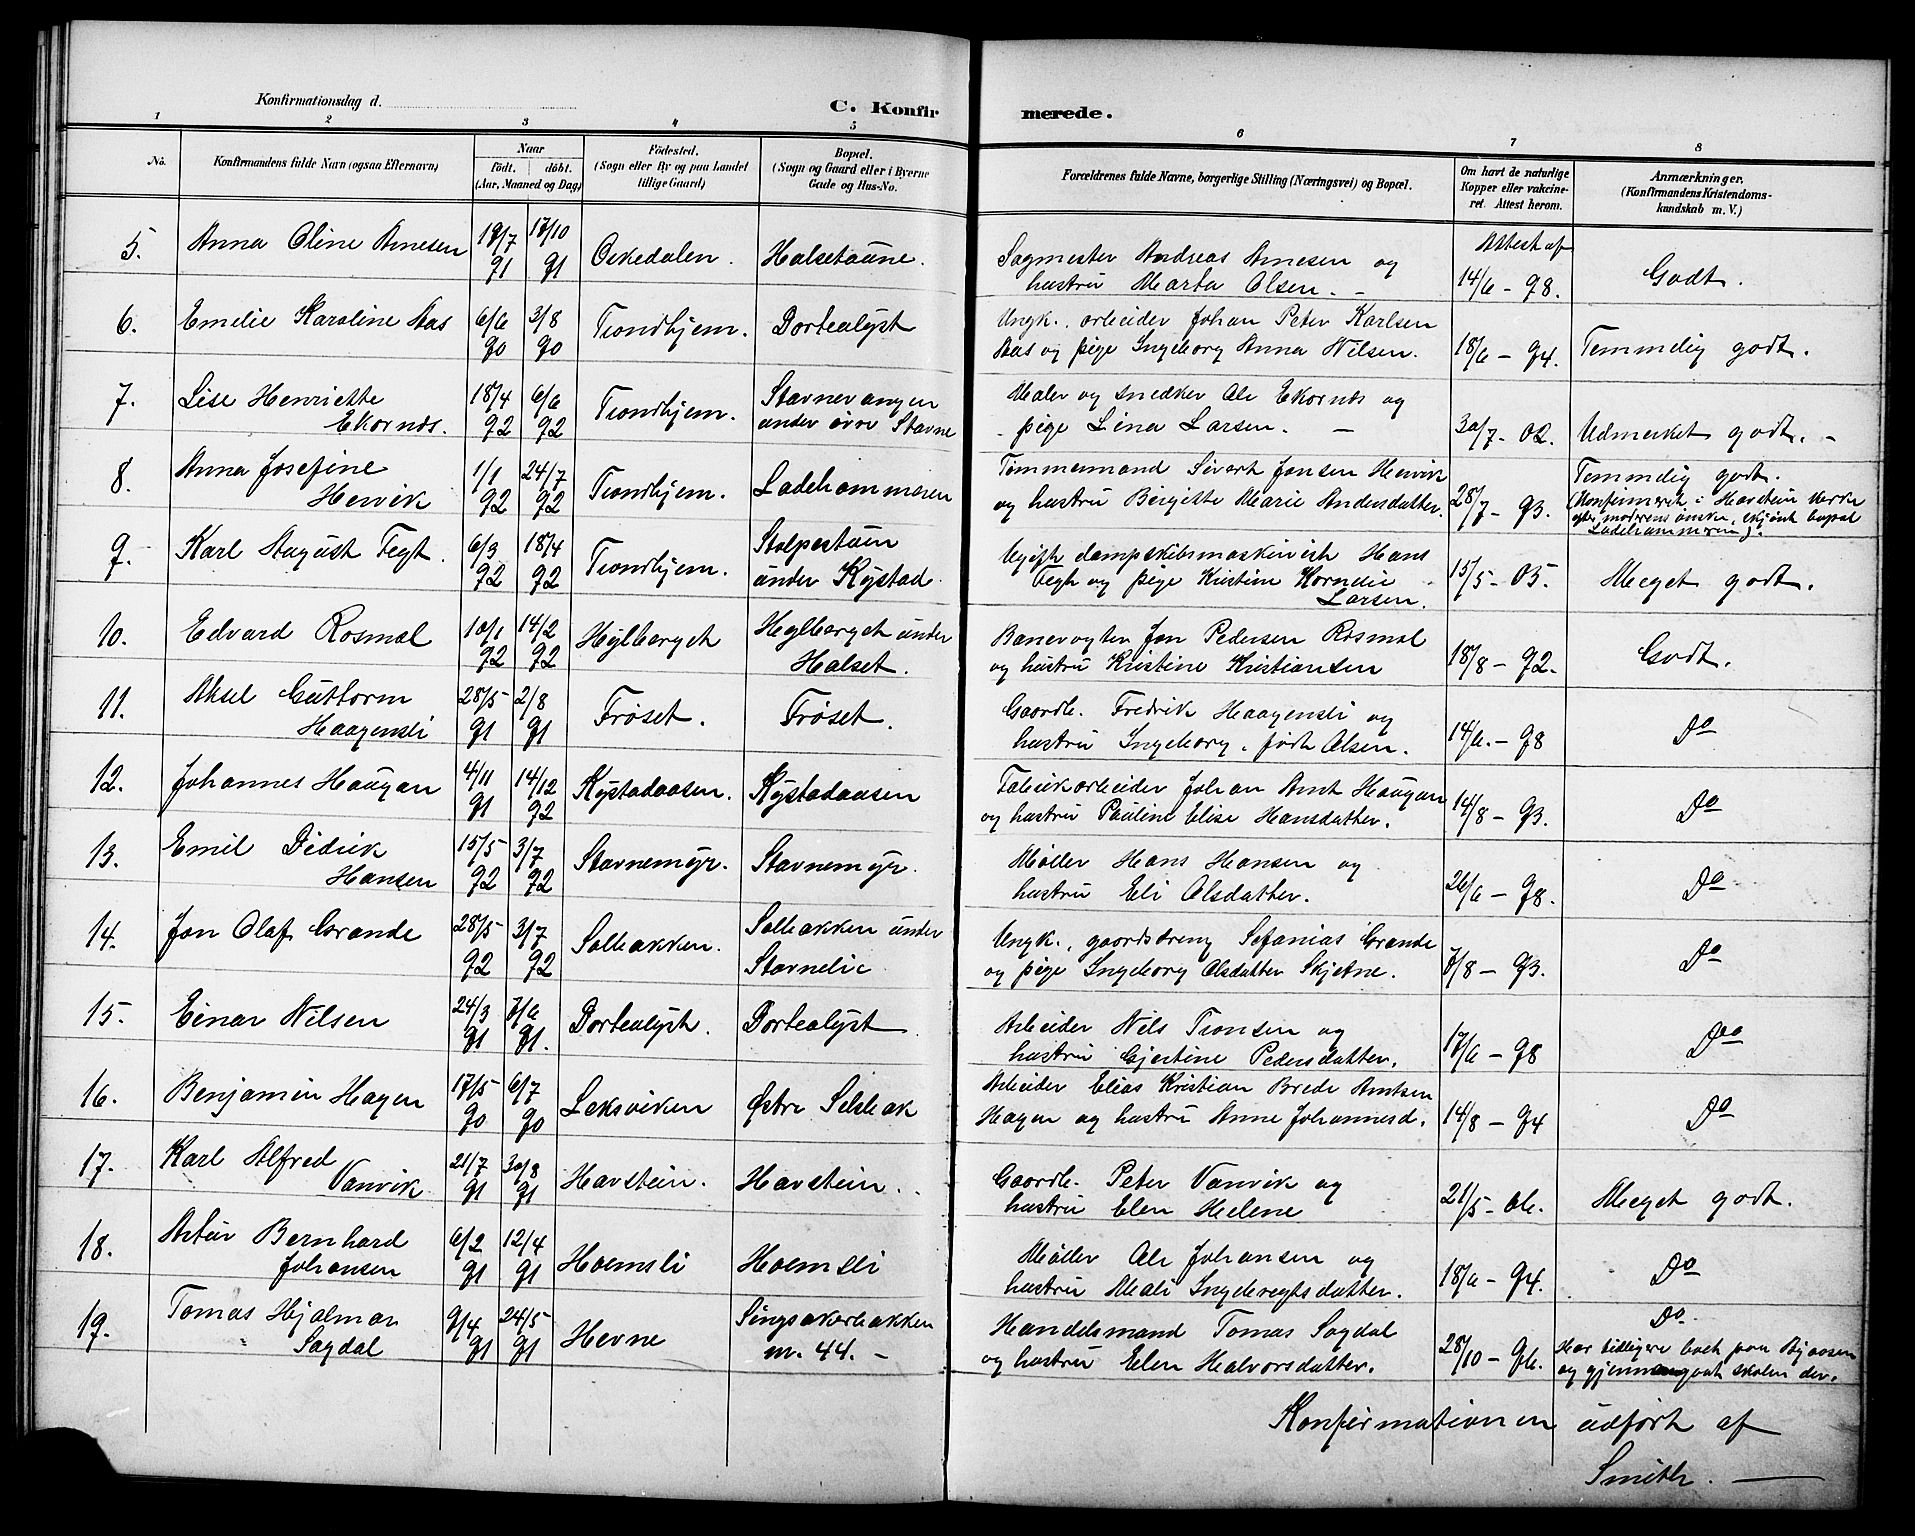 Konfirmationsdag d.
C. Konfir
merede.
1
2
3
4
5
6
7
8
No.
Konfirmandens fulde Navn (ogsaa Efternavn)
Naar
født. døbt.
(Aar, Maaned og Dag)
Fødested.
(Sogn eller By og paa Landet
tillige Gaard)
Bopæl.
(Sogn og Gaard eller i Byerne
Gade og Hus-No.
Forældrenes fulde Navne, borgerlige Stilling (Næringsvei) og Bopæl.
Om havt de naturlige
Kopper eller vakcine-
ret. Attest herom.
Anmærkninger,
(Konfirmandens Kristendoms-
kundskab m. V.)
5. Anna Oline Arnesen 19/7 91 17/10 91 Orkedalen. Halsetaune.
Sagmester Andreas Arnesen og
hustru Marta Olsen. - Attest af 14/6 - 98. Godt.
6. Emelie Karoline Aas 6/6 90 3/8 90 Trondhjem. Dortealyst
Ungk., arbeider Johan Peter Karlsen
Aas og pige Ingeborg Anna Nilsen. 18/6 - 94. Temmelig godt.
7. Lise Henriette
Ekornds. 18/4 92 6/6 92 Trondhjem. Stavnevangen
under øvre Stavne
Maler og snedker Ole Ekornds og
pige Lina Larsen. - 30/7 - 02. Udmerket godt. -
8. Anna Josefine
Hervik 1/1 92 24/7 92 Trondhjem. Ladehammeren
Tømmermand Sivert Jonsen Hervik
og hustru Birgitte Marie Andersdatter. 28/7 - 93. Temmelig godt.
(Konfirmeret i Havstein kirke
efter moderens ønske, skjønt bopæl
Ladehammeren).
9. Karl August Tegt. 6/3 92 18/4 92 Trondhjem. Stolpestuen
under Kystad.
Ugift dampskibsmaskinist Hans
Tegt og pige Kristine Kornelie
Larsen. 15/5 - 05. Meget godt.
10. Edvard Rosmæl 10/1 92 14/2 92 Høglberget Heglberget under
Halset.
Banevogter Jon Pedersen Rosmæl
og hustru Kristine Kristiansen 18/8 - 92. Godt.
11. Aksel Guttorm
Haagensli 28/5 91 2/8 91 Frøset. Frøset.
Gaardb. Fredrik Haagensli og
hustru Ingeborg, født Olsen. 14/6. - 98 Do
12. Johannes Haugan 4/11 91 14/12 92 Kystadaasen. Kystadaasen
Fabrikarbeider Johan Arnt Haugan
og hustru Pauline Elise Hansdatter. 14/8 - 93. Do
13. Emil Didrik
Hansen 15/5 92 3/7 92 Stavnemyr. Stavnemyr.
Møller Hans Hansen og
hustru Eli Olsdatter. 26/6 - 98. Do
14. Jon Olaf Grande 28/5 92 3/7 92 Solbakken. Solbakken under
Stavnelie
Ungk., gaardsdreng Sefanias Grande
og pige Ingeborg Olsdatter Skjetne. 7/8 - 93. Do
15. Einar Nilsen 24/3 91 7/6 91. Dortealyst. Dortealyst
Arbeider Nils Tronsen og
hustru Gjertine Pedersdatter. 17/6 - 98 Do
16. Benjamin Hagen 17/5 90 6/7 90 Leksviken Østre Selsbak
Arbeider Elias Kristian Brede Arntsen
Hagen og hustru Anne Johannesd. 14/8 - 94 Do
17. Karl Alfred
Vanvik 21/7 91 30/8 91 Havstein. Havstein.
Gaardb. Peter Vanvik og
hustru Elen Helene 21/5 - 06. Meget godt.
18. Artur Bernhard
Johansen 6/2 91 12/4 91 Hoemsli Hoemsli
Møller Ole Johansen og
hustru Mali Ingebregtsdatter. 18/6 - 94. Do
19. Tomas Hjalmar
Sagdal 9/4 91 24/5 91 Hevne Singsakerbakken
nr. 44. -
Handelsmand Tomas Sagdal
og hustru Elen Halvorsdatter. 28/10 - 96. Do.
Har tidligere boet paa Byaasen
og gjennemgaat skolen der.
Konfirmationen udført af
Smith.